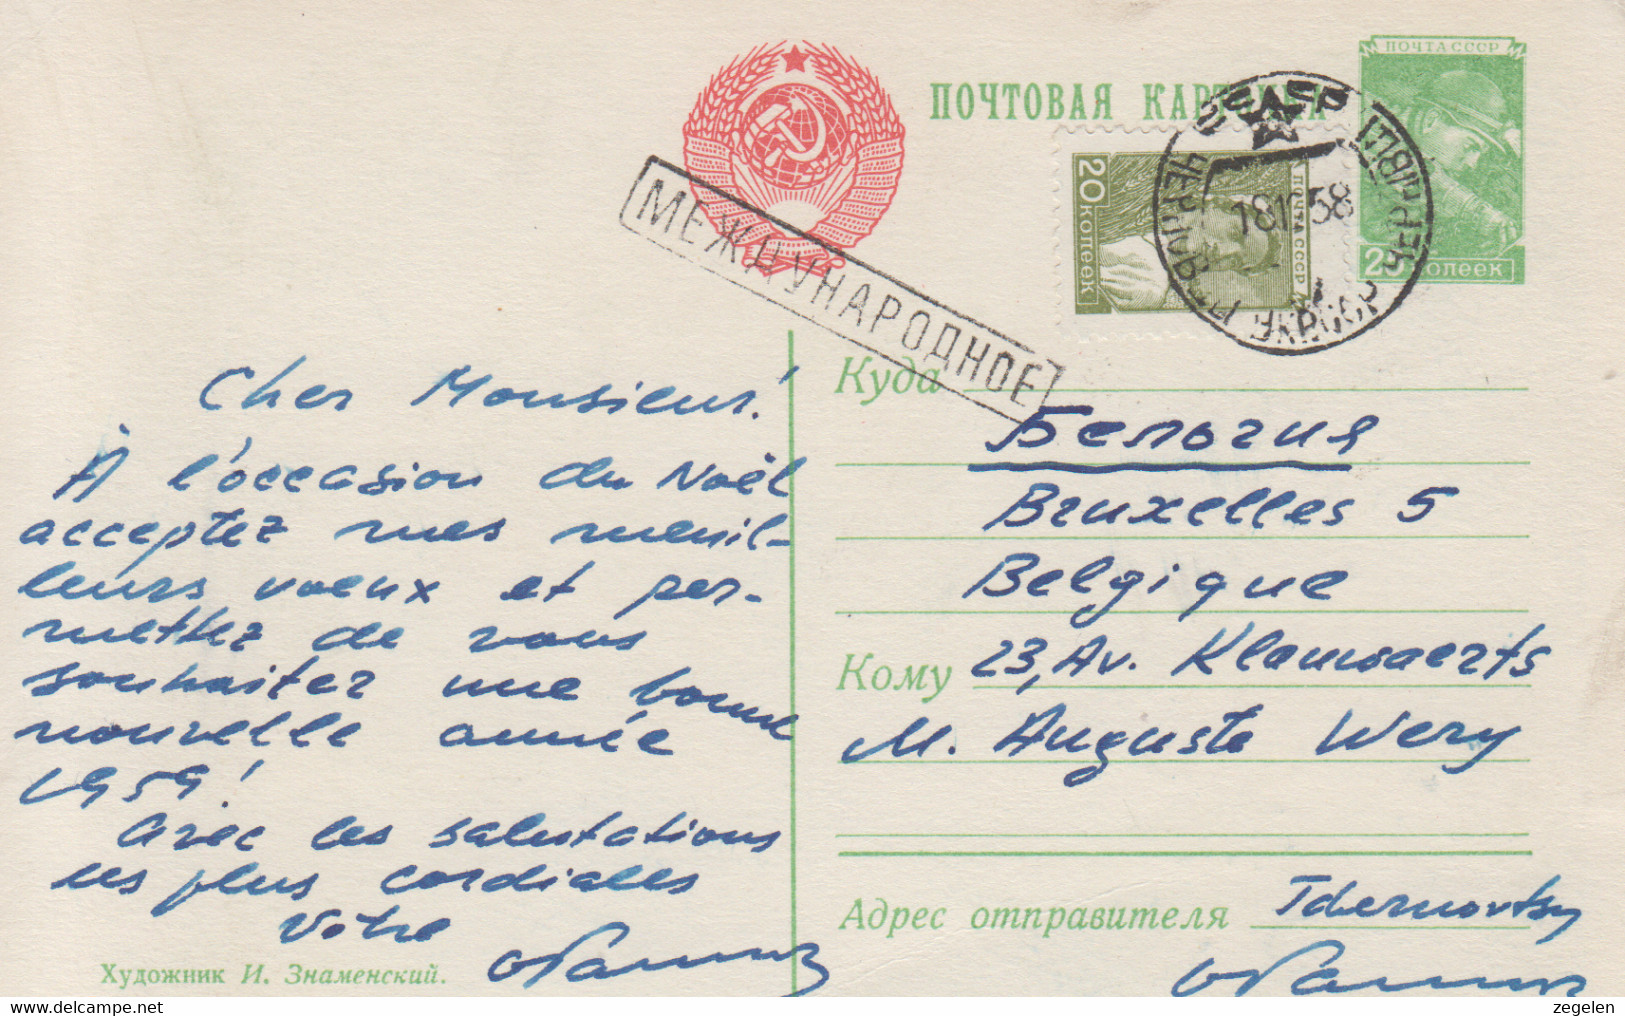 ПОЧТОВАЯ КАРТОЧКА
ПОЧТА СССР
25 КОПЕЕК
20 КОПЕЕК
ПОЧТА СССР
18 58
МЕЖДУНАРОДНОЕ
Cher Monsieur!
À l'occasion du Noël
acceptez mes meuil-
leurs voeux et per-
mettez de vous
souhaiter une bonne
nouvelle année
1959!
Avec les salutations
les plus cordiales
Votre
Художник И. Знаменский.
Куда
Бельгия
Bruxelles 5
Belgique
Кому 23, Av. Klauwaerts
M. Auguste Wery
Адрес отправителя Tchernovtsy
www.delcampe.net
zegelen